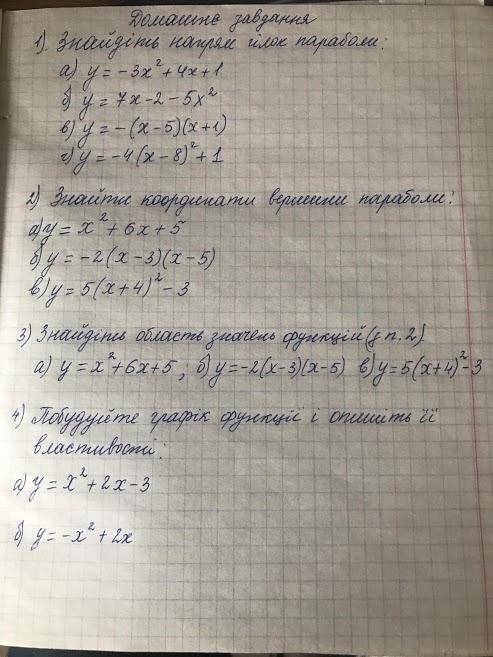 Домашнє завдання
1). Знайдіть напрям гілок параболи:
а) y = -3x² + 4x + 1
б) y = 7x - 2 - 5x²
в) y = -(x - 5)(x + 1)
г) y = -4(x - 8)² + 1
2) Знайти координати вершини параболи:
а) y = x² + 6x + 5
б) y = -2(x - 3)(x - 5)
в) y = 5(x + 4)² - 3
3) Знайдіть область значень функцій (з п. 2)
а) y = x² + 6x + 5; б) y = -2(x - 3)(x - 5) в) y = 5(x + 4)² - 3
4) Побудуйте графік функції і опишіть її
властивості:
а) y = x² + 2x - 3
б) y = -x² + 2x